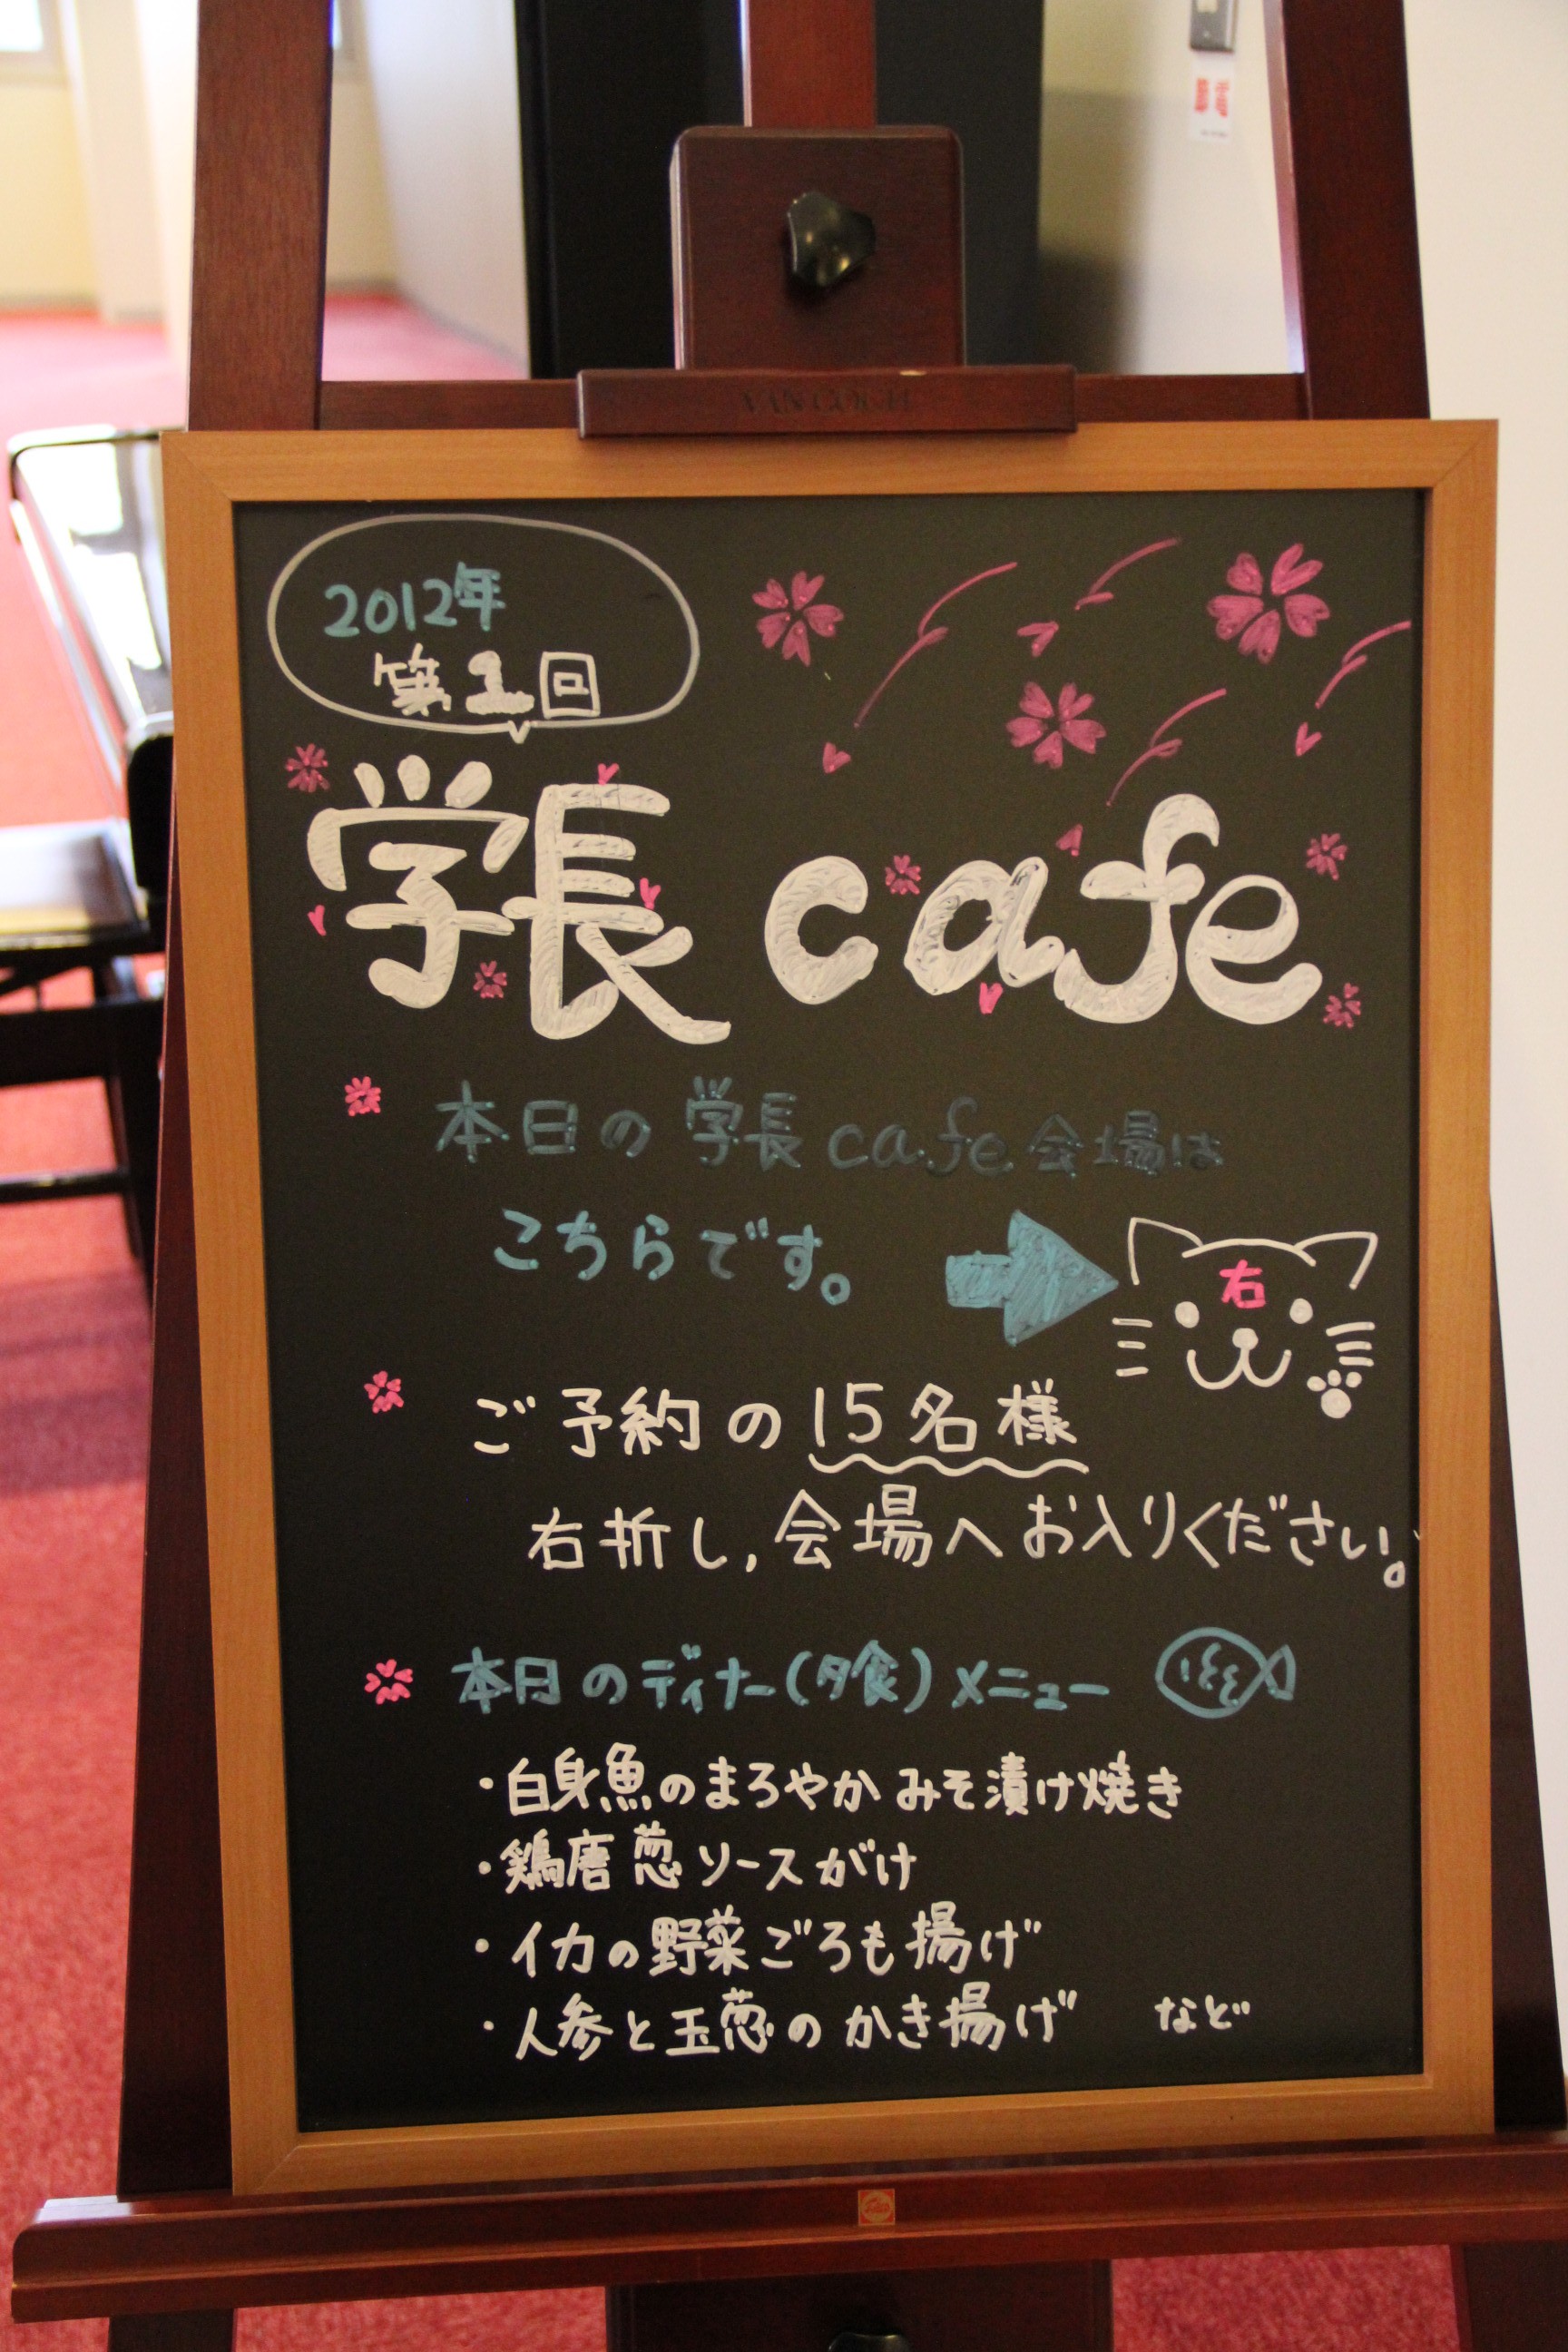 VAN GOGH
2012年
第1回
学長 cafe
本日の学長cafe会場は
こちらです。
右
ご予約の15名様
右折し,会場へお入りください。
本日のディナー(夕食)メニュー
・白身魚のまろやかみそ漬け焼き
・鶏唐葱ソースがけ
・イカの野菜ごろも揚げ
・人参と玉葱のかき揚げ など